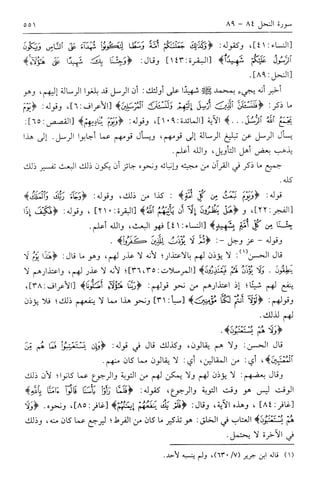 سورة النحل ٨٤ - ٨٩ ٥٥١
[النساء: ٤١]، وكقوله: ﴿وَكَذَٰلِكَ جَعَلْنَٰكُمْ أُمَّةً وَسَطًا لِّتَكُونُوا۟ شُهَدَآءَ عَلَى ٱلنَّاسِ وَيَكُونَ
ٱلرَّسُولُ عَلَيْكُمْ شَهِيدًا﴾ [البقرة: ١٤٣] وقال: ﴿وَجِئْنَا بِكَ شَهِيدًا عَلَىٰ هَٰٓؤُلَآءِ﴾
[النحل: ٨٩].
أخبر أنه يجيء بمحمد ﷺ شهيدًا على أولئك: أن الرسل قد بلغوا الرسالة إليهم، وهو
ما ذكر: ﴿فَلَنَسْـَٔلَنَّ ٱلَّذِينَ أُرْسِلَ إِلَيْهِمْ وَلَنَسْـَٔلَنَّ ٱلْمُرْسَلِينَ﴾ [الأعراف: ٦]، وقوله: ﴿يَوْمَ
يَجْمَعُ ٱللَّهُ ٱلرُّسُلَ...﴾ الآية [المائدة: ١٠٩]، وقوله: ﴿وَيَوْمَ يُنَادِيهِمْ﴾ [القصص: ٦٥]:
يسأل الرسل عن تبليغ الرسالة إلى قومهم، ويسأل قومهم عما أجابوا الرسل. إلى هذا
يذهب بعض أهل التأويل، والله أعلم.
جميع ما ذكر في القرآن من مجيئه وإتيانه ونحوه جائز أن يكون ذلك البعث تفسير ذلك
كله.
قوله: ﴿وَيَوْمَ نَبْعَثُ مِن كُلِّ أُمَّةٍ﴾: كذا من ذلك، وقوله: ﴿وَجَآءَ رَبُّكَ وَٱلْمَلَكُ﴾
[الفجر: ٢٢]، و ﴿هَلْ يَنظُرُونَ إِلَّآ أَن يَأْتِيَهُمُ ٱللَّهُ﴾ [البقرة: ٢١٠]، وقوله: ﴿فَكَيْفَ إِذَا
جِئْنَا مِن كُلِّ أُمَّةٍۭ بِشَهِيدٍ﴾ [النساء: ٤١] فهو البعث، والله أعلم.
وقوله - عز وجل -: ﴿ثُمَّ لَا يُؤْذَنُ لِلَّذِينَ كَفَرُوا۟﴾.
قال الحسن(١): لا يؤذن لهم بالاعتذار؛ لأنه لا عذر لهم، وهو ما قال: ﴿هَٰذَا يَوْمُ لَا
يَنطِقُونَ . وَلَا يُؤْذَنُ لَهُمْ فَيَعْتَذِرُونَ﴾ [المرسلات: ٣٥، ٣٦]؛ لأنه لا عذر لهم، واعتذارهم لا
ينفع لهم شيئًا؛ إذ اعتذارهم من نحو قولهم: ﴿رَبَّنَا هَٰٓؤُلَآءِ أَضَلُّونَا﴾ [الأعراف: ٣٨]،
وقولهم: ﴿لَوْلَآ أَنتُمْ لَكُنَّا مُؤْمِنِينَ﴾ [سبأ: ٣١] ونحو هذا مما لا ينفعهم ذلك؛ فلا يؤذن
لهم لذلك.
﴿وَلَا هُمْ يُسْتَعْتَبُونَ﴾.
قال الحسن: ولا هم يقالون، وكذلك قال في قوله: ﴿وَإِن يَسْتَعْتِبُوا۟ فَمَا هُم مِّنَ
ٱلْمُعْتَبِينَ﴾، أي: من المقالين، أي: لا يقالون مما كان منهم.
وقال بعضهم: لا يؤذن لهم ولا يمكن لهم من التوبة والرجوع عما كانوا؛ لأن ذلك
الوقت ليس هو وقت التوبة والرجوع، كقوله: ﴿فَلَمَّا رَأَوْا۟ بَأْسَنَا قَالُوٓا۟ ءَامَنَّا بِٱللَّهِ﴾
[غافر: ٨٤]، وهذه الآية، وقال: ﴿فَلَمْ يَكُ يَنفَعُهُمْ إِيمَٰنُهُمْ﴾ [غافر: ٨٥]، ونحوه. ﴿وَلَا
هُمْ يُسْتَعْتَبُونَ﴾ العتاب في الخلق: هو تذكير ما كان من الفرط؛ ليرجع عما كان منه، وذلك
في الآخرة لا يحتمل.
(١) قاله ابن جرير (٧/ ٦٣٠)، ولم ينسبه لأحد.